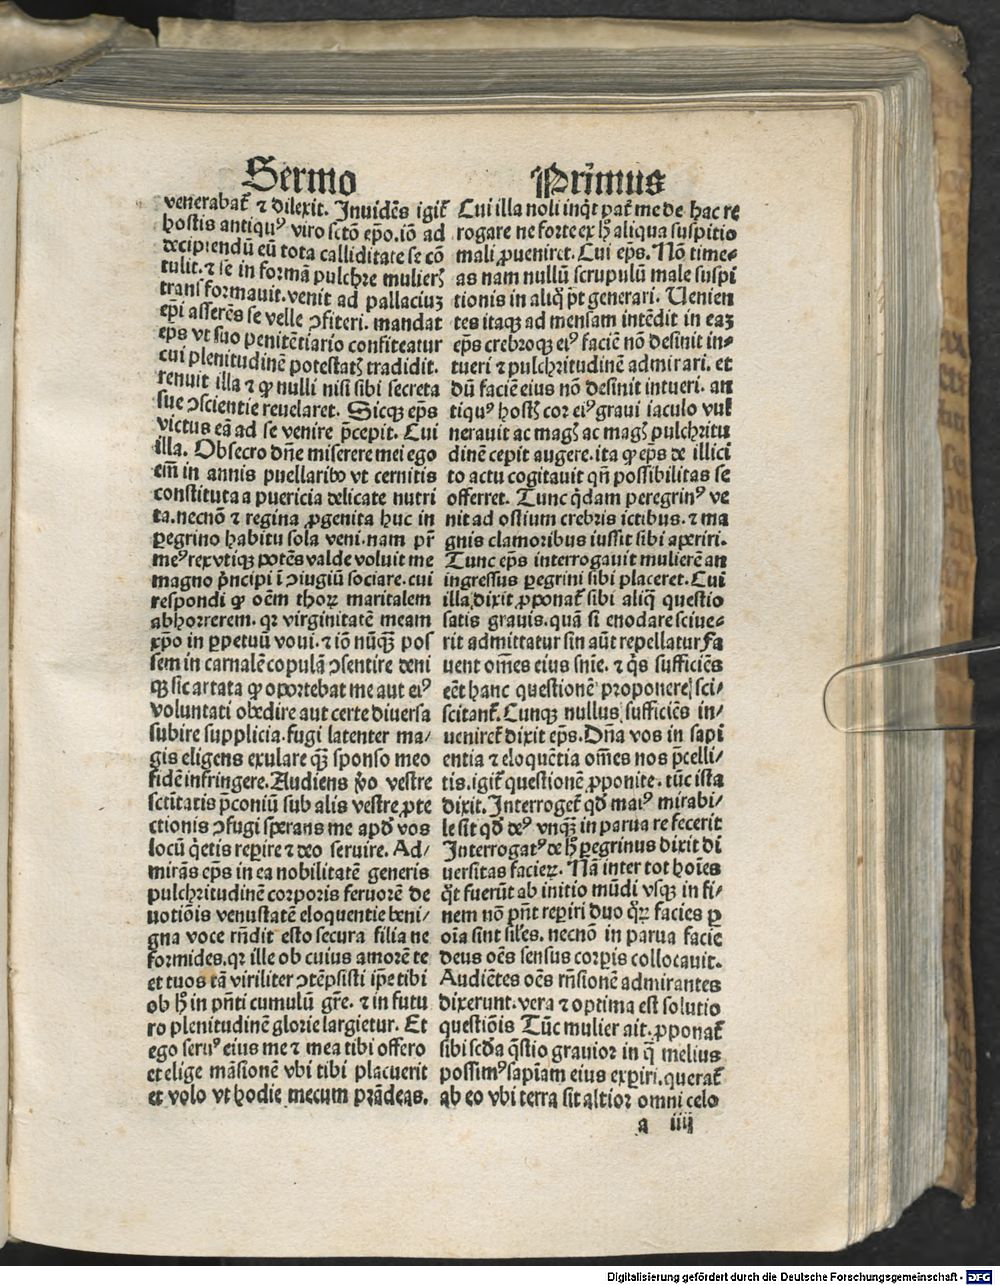 Sermo
venerabat᷑ ⁊ dilexit. Inuidēs igit᷑
hostis antiquꝰ viro sctō ep̄o. iō ad
decipiendū eū tota calliditate se cō
tulit. ⁊ se in formā pulchre mulierꝭ
transformauit. venit ad pallaciuꝫ
ep̄i asserēs se velle ↄfiteri. mandat
ep̄s vt suo penitētiario confiteatur
cui plenitudinē potestatꝭ tradidit.
renuit illa ⁊ ꝙ nulli nisi sibi secreta
sue ↄscientie reuelaret. Sicqꝫ ep̄s
victus eā ad se venire p̄cepit. Cui
illa. Obsecro dn̄e miserere mei ego
em̄ in annis puellaribꝰ vt cernitis
constituta a puericia delicate nutri
ta. necnō ⁊ regina ꝓgenita huc in
ꝑegrino habitu sola veni. nam pr̄
meꝰ rex vtiqꝫ potēs valde voluit me
magno p̄ncipi ī ↄiugiū sociare. cui
respondi ꝙ oēm thoꝝ maritalem
abhorrerem. qꝛ virginitatē meam
xp̄o in ꝑpetuū voui. ⁊ iō nūqꝫ̄ pos
sem in carnalē copulā ↄsentire deni
qꝫ sic artata ꝙ oportebat me aut eiꝰ
voluntati obedire aut certe diuersa
subire supplicia. fugi latenter ma/
gis eligens exulare qꝫ̄ sponso meo
fidē infringere. Audiens v̊o vestre
sctītatis p̄coniū sub alis vestre ꝓte
ctionis ↄfugi sperans me apd̄ vos
locū q̇etis reꝑire ⁊ deo seruire. Ad/
mirās ep̄s in ea nobilitatē generis
pulchritudinē corporis feruorē de
uotiōis venustatē eloquentie beni/
gna voce rn̄dit esto secura filia ne
formides. qꝛ ille ob cuius amorē te
et tuos tā viriliter ↄtēpsisti ip̄e tibi
ob hꝭ in pn̄ti cumulū gr̄e. ⁊ in futu
ro plenitudinē glorie largietur. Et
ego seruꝰ eius me ⁊ mea tibi offero
et elige māsionē vbi tibi placuerit
et volo vt hodie mecum prādeas.
Primus
Cui illa noli inq̇t pat᷑ me de hac re
rogare ne forte ex hꝭ aliqua suspitio
mali ꝓueniret. Cui ep̄s. Nō time⸗
as nam nullū scrupulū male suspi
tionis in aliq̊ p̄t generari. Uenien
tes itaqꝫ ad mensam intēdit in eaꝫ
ep̄s crebroqꝫ eiꝰ faciē nō desinit in⸗
tueri ⁊ pulchritudinē admirari. et
dū faciē eius nō desinit intueri. an
tiquꝰ hostꝭ cor eiꝰ graui iaculo vul̄
nerauit ac magꝭ ac magꝭ pulchritu
dinē cepit augere. ita ꝙ ep̄s de illici
to actu cogitauit qn̄ possibilitas se
offerret. Tunc q̇dam peregrinꝰ ve
nit ad ostium crebris ictibus. ⁊ ma
gnis clamoribus iussit sibi aperiri.
Tunc ep̄s interrogauit mulierē an
ingressus ꝑegrini sibi placeret. Cui
illa dixit ꝓponat᷑ sibi aliq̄ questio
satis grauis. quā si enodare sciue⸗
rit admittatur sin aūt repellatur Fa
uent om̄es eius sn̄ie. ⁊ q̇s sufficiēs
eēt hanc questionē proponere sci/
scitant᷑. Cunqꝫ nullus sufficiēs in/
ueniret᷑ dixit ep̄s. Dn̄a vos in sapi
entia ⁊ eloquētia om̄es nos p̄celli/
tis. igit᷑ questionē ꝓponite. tūc ista
dixit. Interroget᷑ qd̄ maiꝰ mirabi/
le sit qd̄ deꝰ vnqꝫ̄ in parua re fecerit
Interrogatꝰ de hꝭ ꝑegrinus dixit di
uersitas facieꝝ. Nā inter tot hoīes
q̊t fuerūt ab initio mūdi vsqꝫ in fi/
nem nō pn̄t reꝑiri duo q̊ꝝ facies ꝑ
oīa sint sil̄es. necnō in parua facie
deus oēs sensus corꝑis collocauit.
Audiētes oēs rn̄sionē admirantes
dixerunt. vera ⁊ optima est solutio
questiōis Tūc mulier ait. ꝓponat᷑
sibi scd̄a q̄stio grauior in q̄ melius
possimꝰ sapīam eius exꝑiri. querat᷑
ab eo vbi terra sit altior omni celo
a iiij
Digitalisierung gefördert durch die Deutsche Forschungsgemeinschaft - DFG